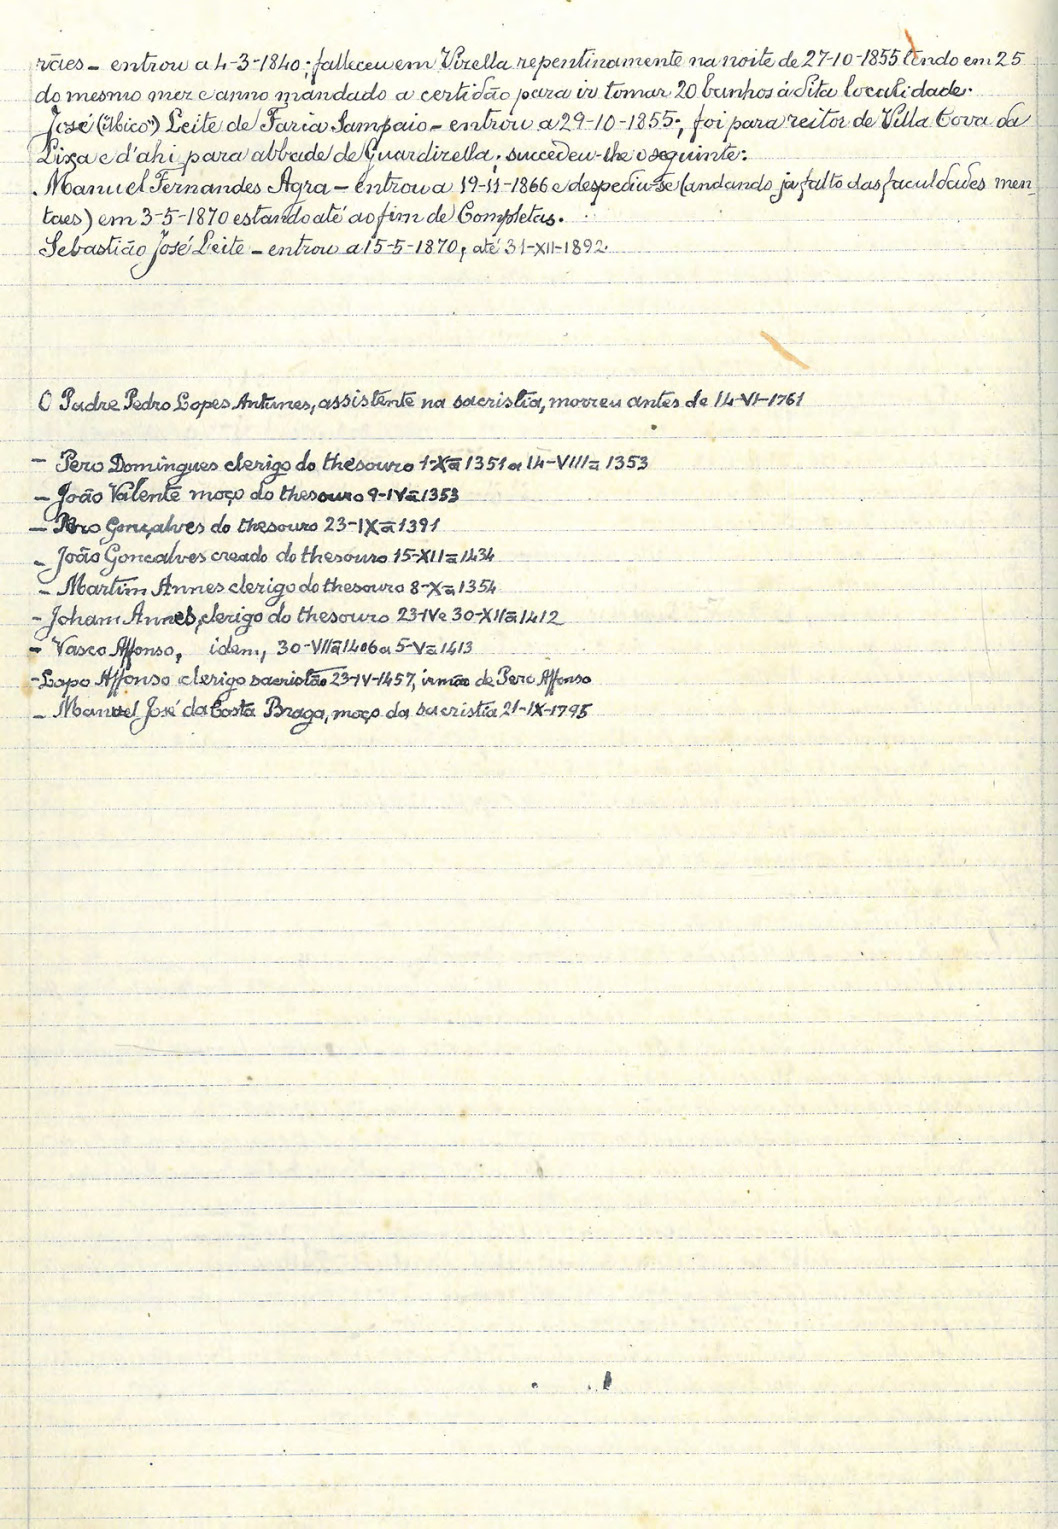 rães - entrou a 4-3-1840; falleceu em Vizella repentinamente na noite de 27-10-1855 tendo em 25
do mesmo mez e anno mandado a certidão para ir tomar 20 banhos á dita localidade.
José ("Ubico") Leite de Faria Sampaio - entrou a 29-10-1855; foi para reitor de Villa Cova da
Lixa e d'ahi para abbade de Guardizella; succedeu-lhe o seguinte:
Manuel Fernandes Agra - entrou a 19-11-1866 e despediu-se (andando ja falto das faculdades men-
taes) em 3-5-1870 estando até ao fim de Completas.
Sebastião José Leite - entrou a 15-5-1870, até 31-XII-1892
O Padre Pedro Lopes Antunes, assistente na sacristia, morreu antes de 14-VI-1761
- Pero Domingues clerigo do thesouro 1-Xª 1351 a 14-VIIIª 1353
- João Valente moço do thesouro 9-IVª 1353
- Pero Gonçalves do thesouro 23-IXª 1391
- João Goncalves creado do thesouro 15-XIIª 1434
- Martim Annes clerigo do thesouro 8-Xª 1354
- Joham Annes, clerigo do thesouro 23-IV e 30-XIIª 1412
- Vasco Affonso, idem, 30-VIIª 1406 a 5-Vª 1413
- Lopo Affonso clerigo sacristão 23-IV-1457, irmão de Pero Affonso
- Manuel José da Costa Braga, moço da sacristia 21-IX-1795